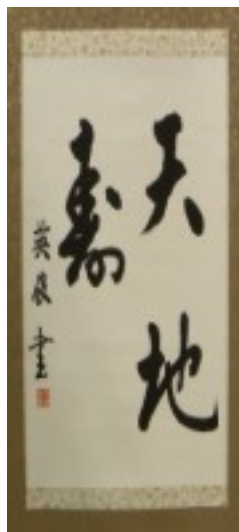 天地
壽
英長書